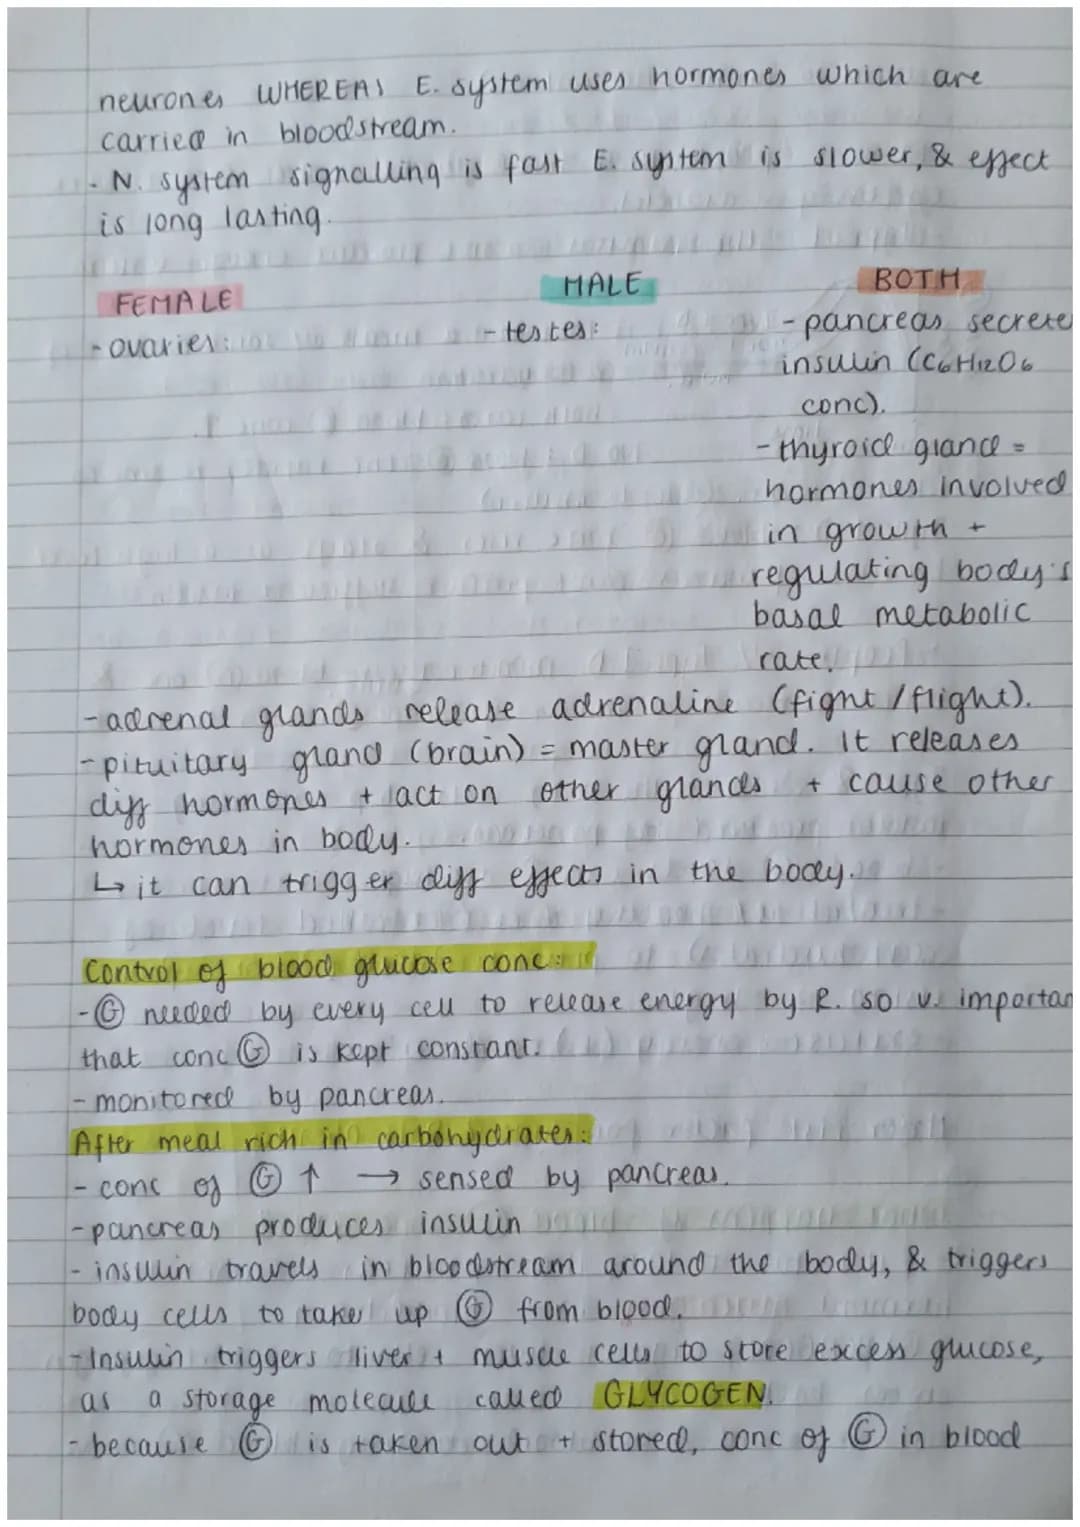 neurones WHEREAS E. system uses hormones which are
carried in bloodstream.
- N. system signalling is fast E. system is slower, & effect
is long lasting.
FEMALE MALE BOTH
- ovaries: - testes: - pancreas secrete
insulin (C6H12O6
conc).
- thyroid gland =
hormones involved
in growth +
regulating body's
basal metabolic
rate.
- adrenal glands release adrenaline (fight / flight).
- pituitary gland (brain) = master gland. It releases
diff hormones + act on other glands + cause other
hormones in body.
↳ it can trigger diff effects in the body.
Control of blood glucose conc:
- Ⓖ needed by every cell to release energy by R. so v. importan
that conc Ⓖ is kept constant.
- monitored by pancreas.
After meal rich in carbohydrates:
- conc of Ⓖ ↑ → sensed by pancreas.
- pancreas produces insulin
- insulin travels in bloodstream around the body, & triggers
body cells to take up Ⓖ from blood.
- Insulin triggers liver + muscle cells to store excess glucose,
as a storage molecule called GLYCOGEN.
- because Ⓖ is taken out + stored, conc of Ⓖ in blood